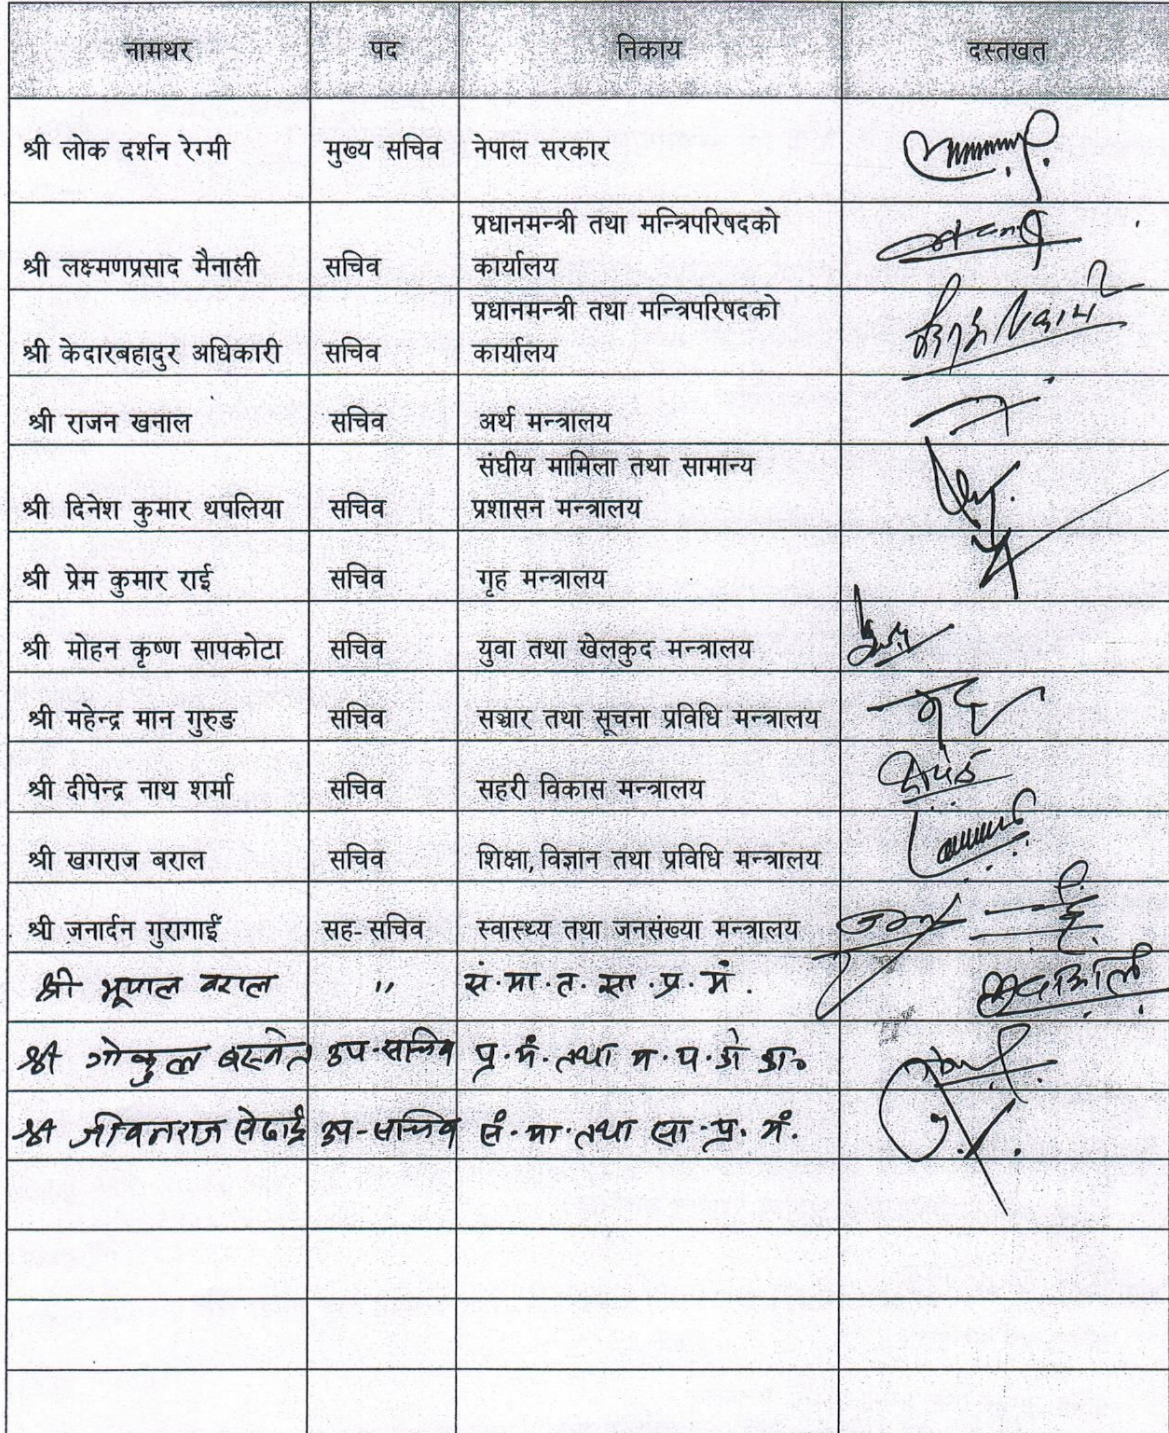 नामथर पद निकाय दस्तखत
श्री लोक दर्शन रेग्मी मुख्य सचिव नेपाल सरकार
प्रधानमन्त्री तथा मन्त्रिपरिषदको
श्री लक्ष्मणप्रसाद मैनाली सचिव कार्यालय
प्रधानमन्त्री तथा मन्त्रिपरिषदको
श्री केदारबहादुर अधिकारी सचिव कार्यालय
श्री राजन खनाल सचिव अर्थ मन्त्रालय
संघीय मामिला तथा सामान्य
श्री दिनेश कुमार थपलिया सचिव प्रशासन मन्त्रालय
श्री प्रेम कुमार राई सचिव गृह मन्त्रालय
श्री मोहन कृष्ण सापकोटा सचिव युवा तथा खेलकुद मन्त्रालय
श्री महेन्द्र मान गुरुङ सचिव सञ्चार तथा सूचना प्रविधि मन्त्रालय
श्री दीपेन्द्र नाथ शर्मा सचिव सहरी विकास मन्त्रालय
श्री खगराज बराल सचिव शिक्षा, विज्ञान तथा प्रविधि मन्त्रालय
श्री जनार्दन गुरागाईं सह-सचिव स्वास्थ्य तथा जनसंख्या मन्त्रालय
श्री भूपाल बराल ,, सं.मा.त.सा.प्र.मं.
श्री गोकुल बस्नेत उप-सचिव प्र.मं. तथा म.प.को का०
श्री जीवनराज उप-सचिव सं.मा.तथा सा.प्र.मं.